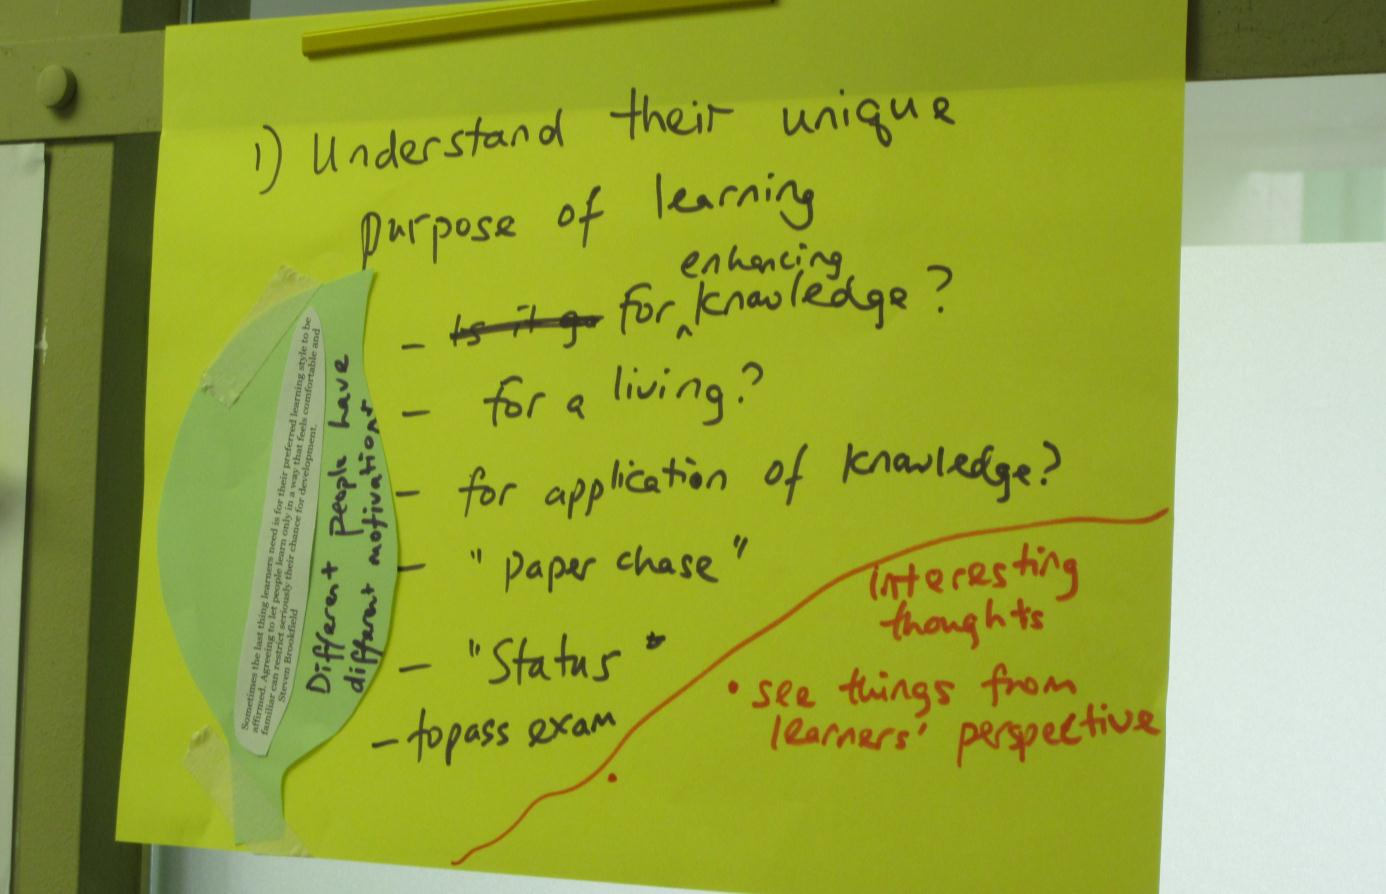 1) Understand their unique
purpose of learning
enhancing
- Is it go for ^ knowledge?
- for a living?
- for application of knowledge?
- "paper chase"
- "Status"
- to pass exam
Sometimes the last thing learners need is for their preferred learning style to be
affirmed. Agreeing to let people learn only in a way that feels comfortable and
familiar can restrict seriously their chance for development.
Steven Brookfield
Different people have
different motivations
Interesting
thoughts
• see things from
learners' perspective
•